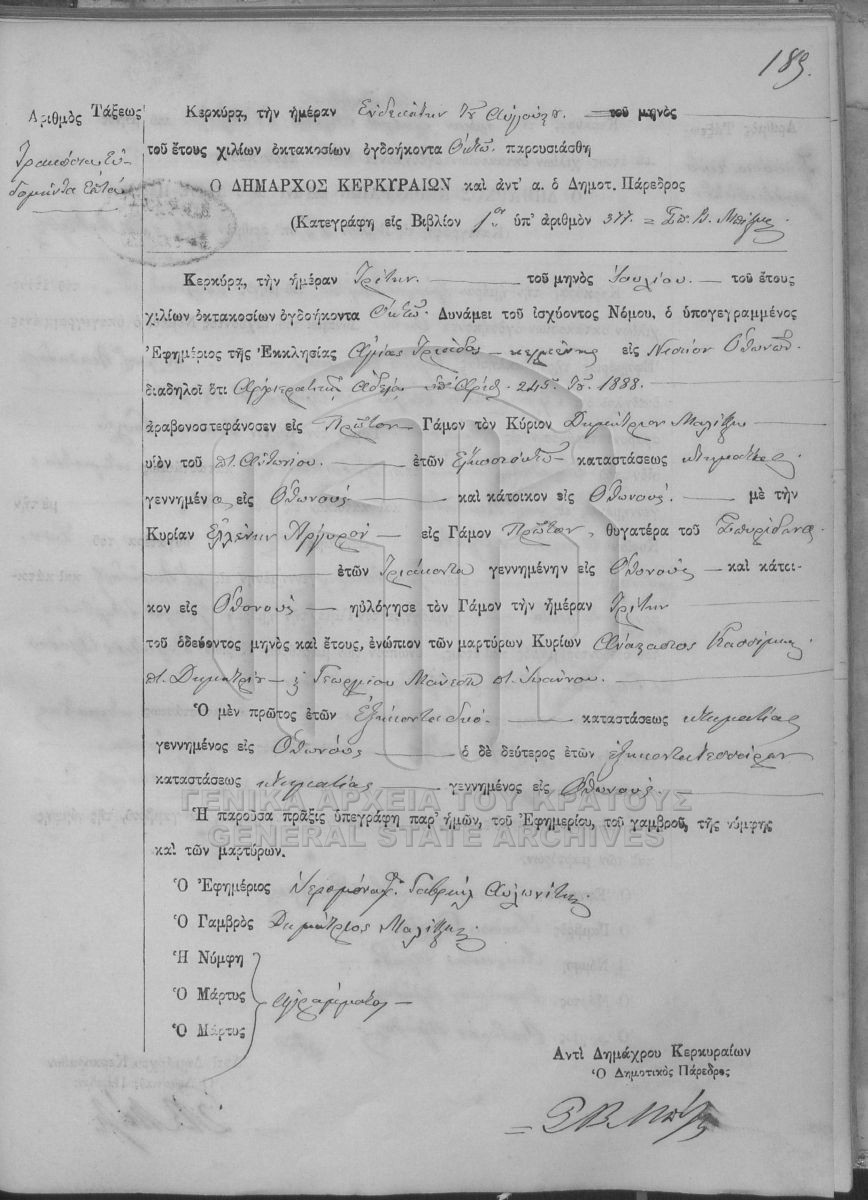 189.
Ἀριθμὸς Τάξεως
Τριακόσια Εὐ-
δομῆντα Ἑπτά
Κερκύρᾳ, τὴν ἡμέραν Ἑνδεκάτην τοῦ Αὐγούστου τοῦ μηνὸς
τοῦ ἔτους χιλίων ὀκτακοσίων ὀγδοήκοντα Ὀκτὼ παρουσιάσθη
Ο ΔΗΜΑΡΧΟΣ ΚΕΡΚΥΡΑΙΩΝ καὶ ἀντ' α. ὁ Δημοτ. Πάρεδρος
(Κατεγράφη εἰς Βιβλίον 1ον ὑπ' ἀριθμὸν 377 = Σπ. Β.
Κερκύρᾳ, τὴν ἡμέραν Τρίτην — τοῦ μηνὸς Ἰουλίου. — τοῦ ἔτους
χιλίων ὀκτακοσίων ὀγδοήκοντα Ὀκτὼ. Δυνάμει τοῦ ἰσχύοντος Νόμου, ὁ ὑπογεγραμμένος
Ἐφημέριος τῆς Ἐκκλησίας Ἁγίας Τριάδος — κειμένης εἰς Νησίον Ὀθωνῶν
διαδηλοῖ ὅτι Ἀρχιερατικῇ Ἀδείᾳ ὑπ' Ἀριθ. 245. τοῦ 1888. —
ἀραβονοστεφάνοσεν εἰς Πρῶτον — Γάμον τὸν Κύριον Δημήτριον
υἱὸν τοῦ π. Ἀντωνίου. — ἐτῶν Εἰκοσιοκτὼ — καταστάσεως κτηματίας
γεννημένο εἰς Ὀθωνούς — καὶ κάτοικον εἰς Ὀθωνούς. — μὲ τὴν
Κυρίαν Ἑλλένην Ἀργυροῦ — εἰς Γάμον Πρῶτον, θυγατέρα τοῦ Σπυρίδωνος.
— ἐτῶν Τριάκοντα γεννημένην εἰς Ὀθονούς — καὶ κάτοι-
κον εἰς Ὀθονούς — ηὐλόγησε τὸν Γάμον τὴν ἡμέραν Τρίτην —
τοῦ ὁδεύοντος μηνὸς καὶ ἔτους, ἐνώπιον τῶν μαρτύρων Κυρίων Ἀναστάσιος Κασσίμης
π. Δημητρίου — & Γεωργίου π. Ἰωάννου. —
Ὁ μὲν πρῶτος ἐτῶν Ἑξήκοντα δυό. — καταστάσεως κτηματίας
γεννημένος εἰς Ὀθωνούς — ὁ δὲ δεύτερος ἐτῶν ἑξηκοντατεσσάρων
καταστάσεως κτηματίας — γεννημένος εἰς Ὀθωνούς. —
ΓΕΝΙΚΑ ΑΡΧΕΙΑ ΤΟΥ ΚΡΑΤΟΥΣ
Ἡ παροῦσα πρᾶξις ὑπεγράφη παρ' ἡμῶν, τοῦ Ἐφημερίου, τοῦ γαμβροῦ, τῆς νύμφης
GENERAL STATE ARCHIVES
καὶ τῶν μαρτύρων.
Ὁ Ἐφημέριος Ἱερομόναχος Γαβριὴλ Αὐλωνίτης
Ὁ Γαμβρὸς Δημήτριος
Ἡ Νύμφη
Ὁ Μάρτυς ἀγράμματοι —
Ὁ Μάρτυς
Ἀντὶ Δημάχρου Κερκυραίων
Ὁ Δημοτικὸς Πάρεδρος